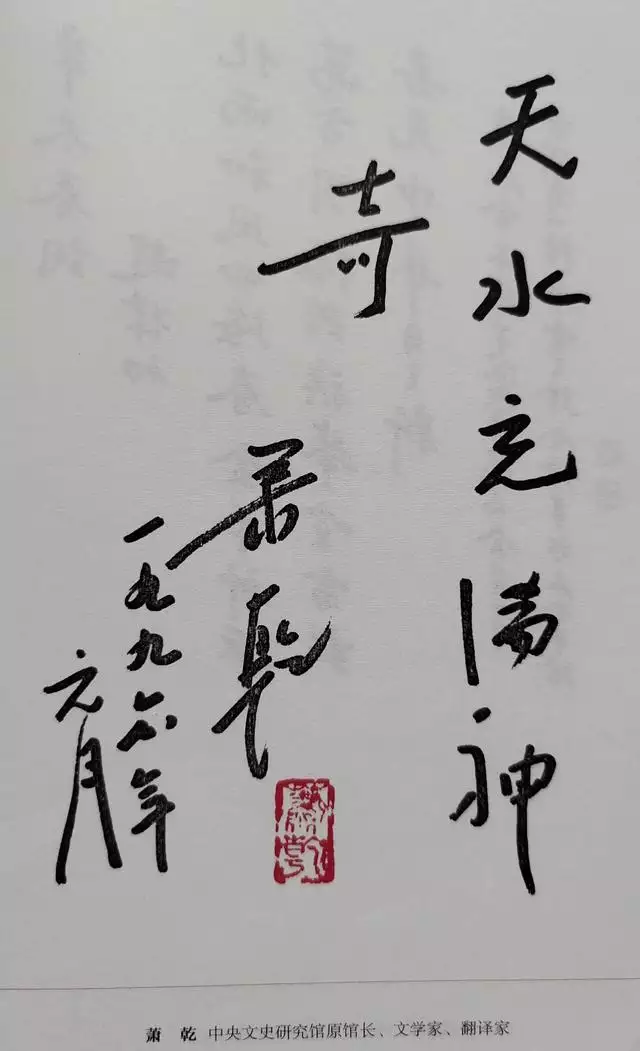 天水充满神
奇
萧乾
一九九六年
元月
萧乾
萧 乾 中央文史研究馆原馆长、文学家、翻译家